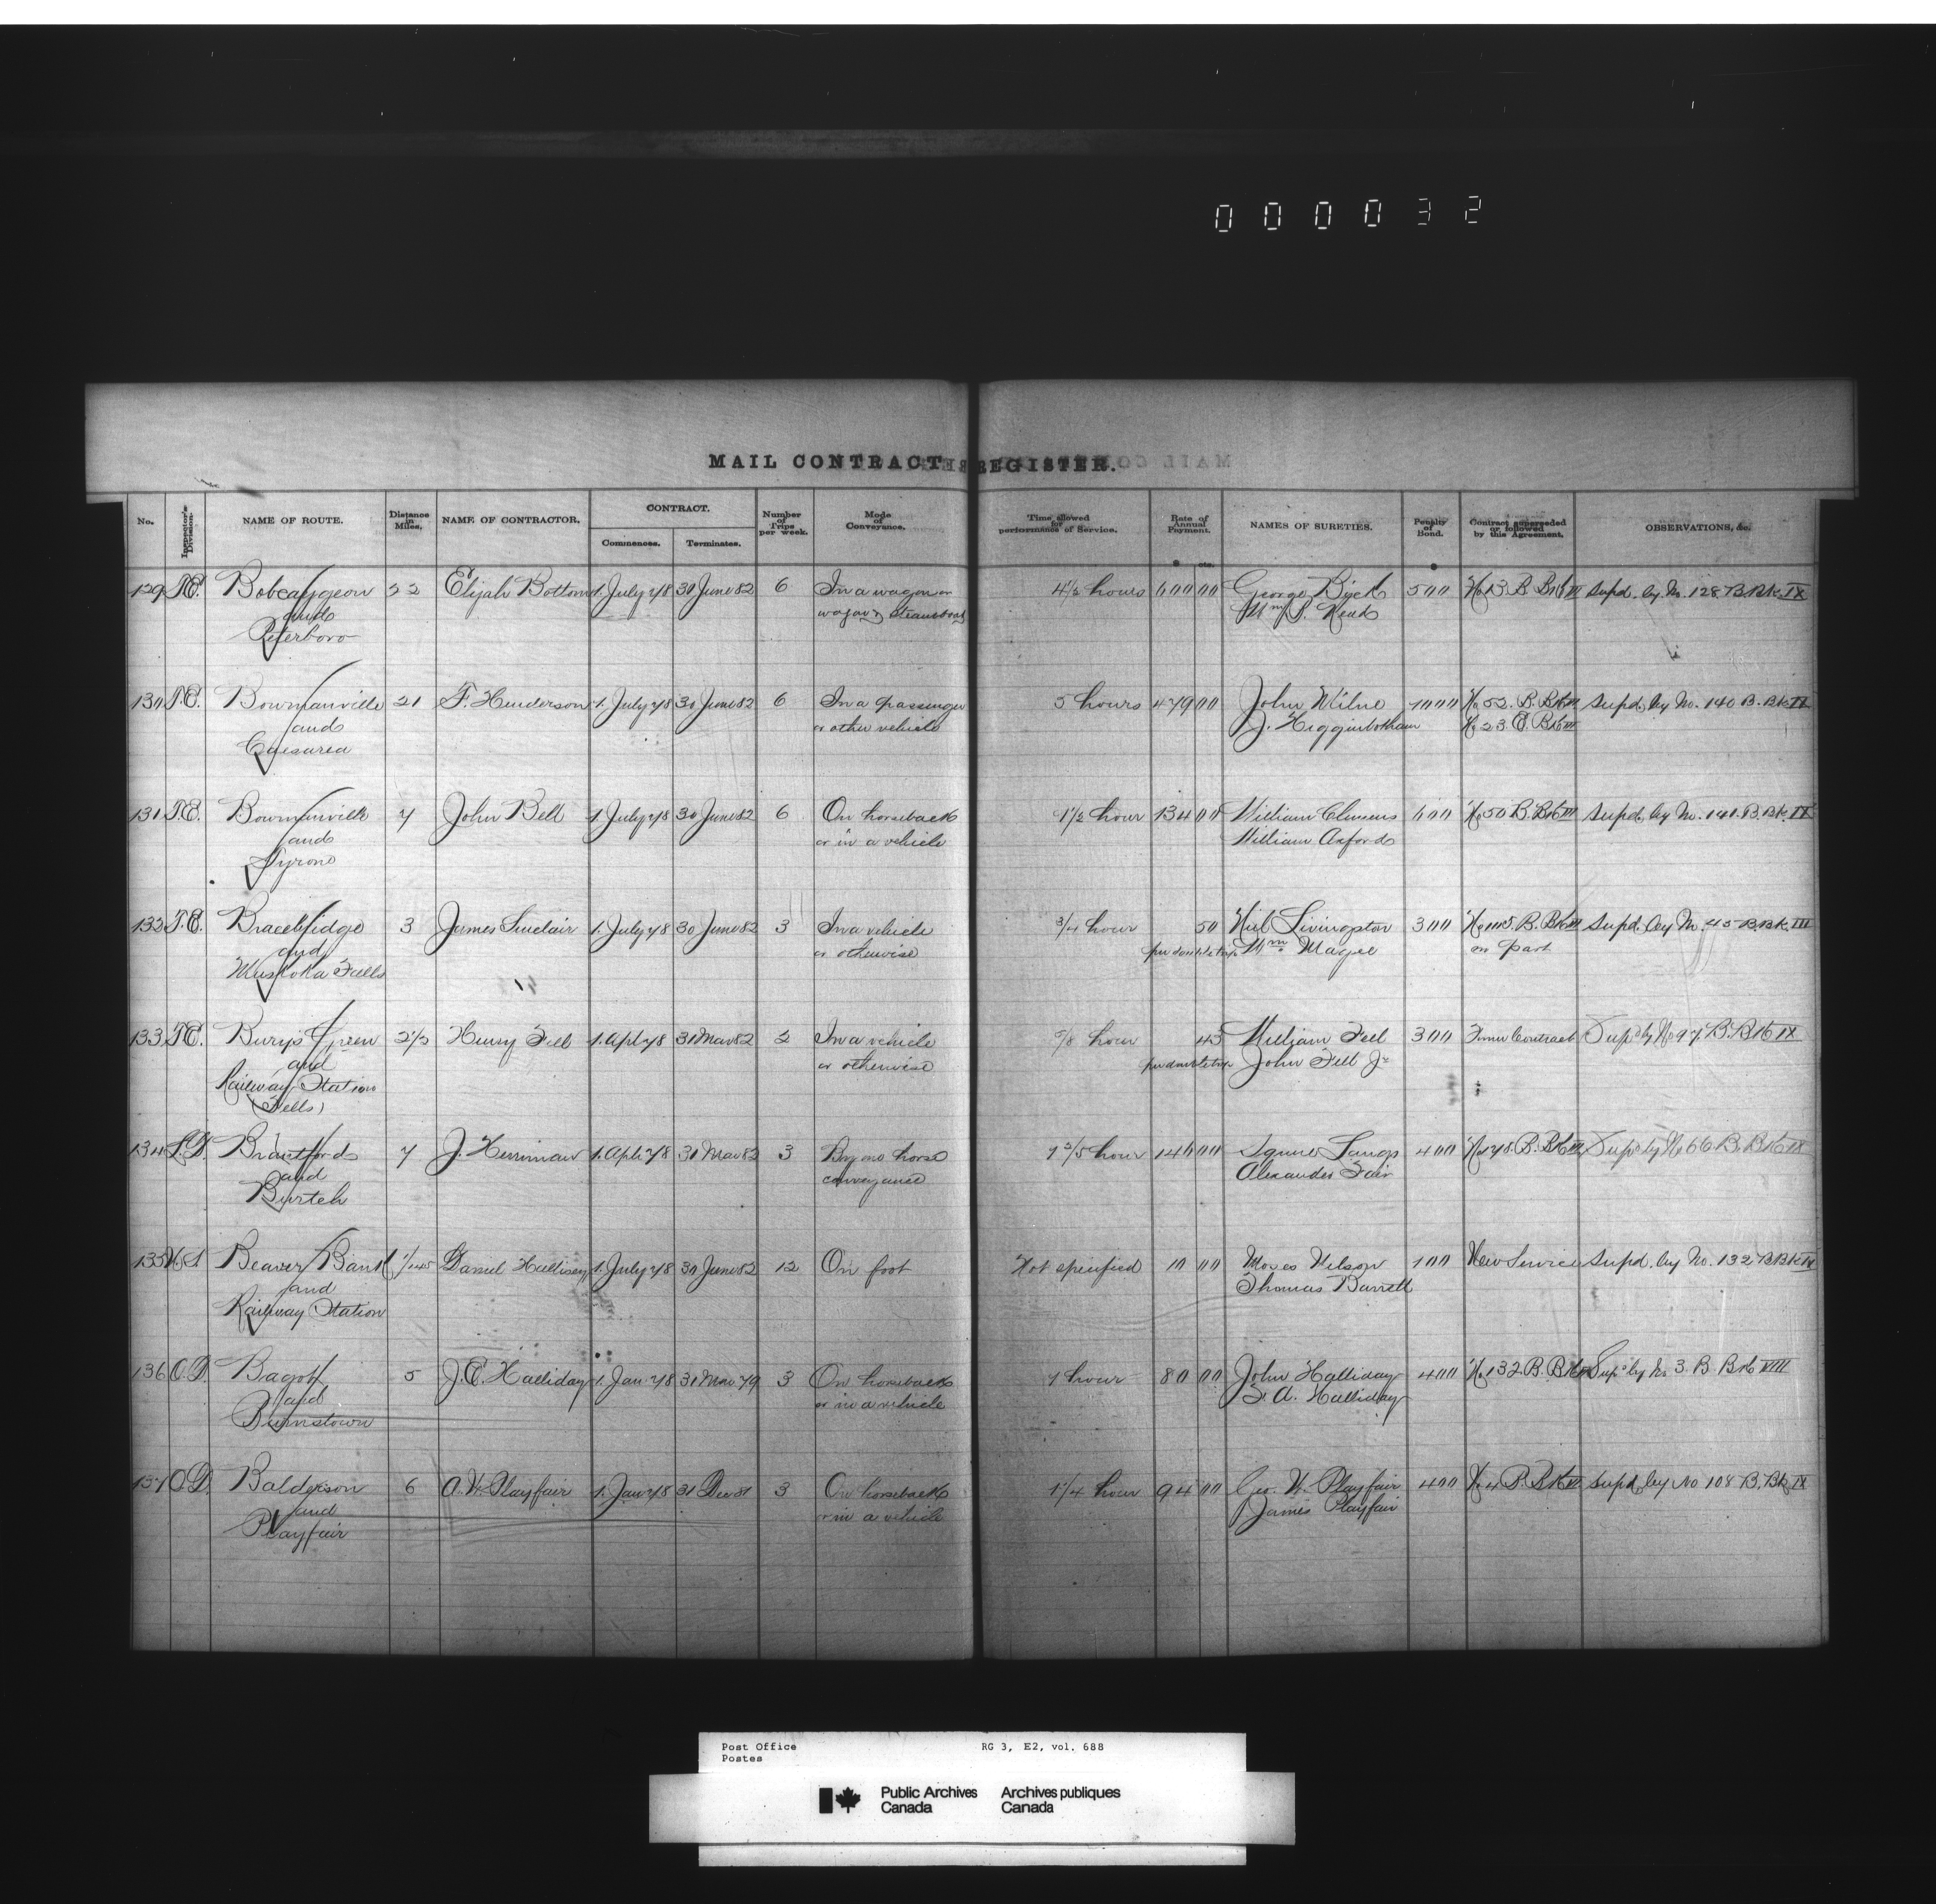 000032
MAIL CONTRACT REGISTER.
No. Inspector's Division. NAME OF ROUTE. Distance in Miles. NAME OF CONTRACTOR. CONTRACT. Commences. Terminates. Number of Trips per week. Mode of Conveyance. Time allowed for performance of Service. Rate of Annual Payment. NAMES OF SURETIES. Penalty of Bond. Contract superseded or followed by this Agreement. OBSERVATIONS, &c.
129 T.E. Bobcaygeon 22 Elijah Bottom 1. July 78 30 June 82 6 In a wagon or 4 1/2 hours 600 00 George Bick 500 No 13 B Bk Supd. by No. 128 B. Bk. IX
and wagon & steamboat Wm S. Read
Peterboro
130 T.E. Bowmanville 21 F. Henderson 1. July 78 30 June 82 6 In a passenger 5 hours 479 00 John Milne 1000 No 52. B. Bk III Supd. by No. 140 B. Bk IX
and or other vehicle J. Higginbotham No 23 C. Bk III
Caesarea
131 T.E. Bowmanville 7 John Bell 1. July 78 30 June 82 6 On horseback 1 1/2 hour 134 00 William Clemens 600 No 50 B. Bk III Supd. by No. 141. B. Bk. IX
and or in a vehicle William Axford
Tyrone
132 T.E. Bracebridge 3 James Sinclair 1. July 78 30 June 82 3 In a vehicle 3/4 hour 50 Neil Livingston 300 B. Bk III Supd. by No. 45 B. Bk. III
and or otherwise per double trip Wm Magee in part
Muskoka Falls
133 T.E. Bury's Green 2 1/2 Henry Fell 1. Apl 78 31 Mar 82 2 In a vehicle 5/8 hour 45 William Fell 300 Former Contract Supd by No 97 B. Bk IX
and or otherwise per double trip John Fell Jr
Railway Station
(Fells)
134 L.D. Brantford 7 J. Herriman 1. Apl 78 31 Mar 82 3 By one horse 1 2/5 hour 146 00 Squire 400 No 178 B. Bk III Supd by No 66 B. Bk IX
and conveyance Alexander Fair
Burtch
135 N.S Beaver Bank 1/145 Daniel Hallisey 1. July 78 30 June 82 12 On foot Not specified 10 00 Moses Nelson 100 New Service Supd. by No. 132 B Bk IX
and Thomas Barrett
Railway Station
136 O.D. Bagot 5 J.E. Halliday 1. Jan 78 31 Mar 79 3 On horseback 1 hour 80 00 John Halliday 400 No 132 B. Bk Supd by No 3 B. Bk VIII
and or in a vehicle S. A. Halliday
Burnstown
137 O.D. Balderson 6 A.W. Playfair 1. Jan 78 31 Dec 81 3 On horseback 1 1/4 hour 94 00 Geo. W. Playfair 400 No 4 B. Bk Supd by No 108 B. Bk IX
and or in a vehicle James Playfair
Playfair
Post Office RG 3, E2, vol. 688
Postes
Public Archives Archives publiques
Canada Canada